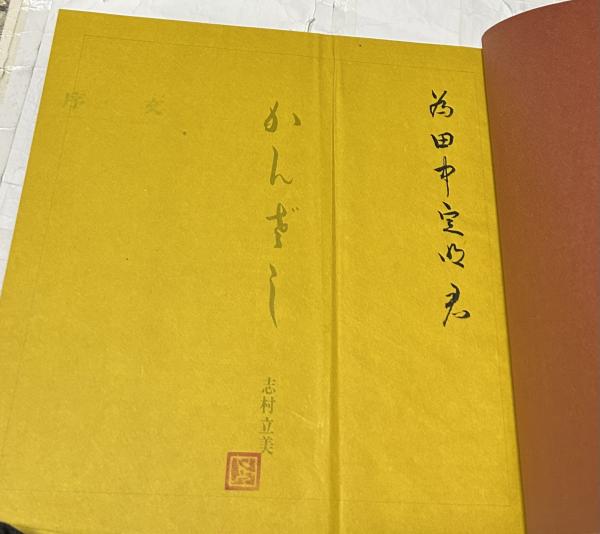 為田中定明君
かんざし
志村立美
序文